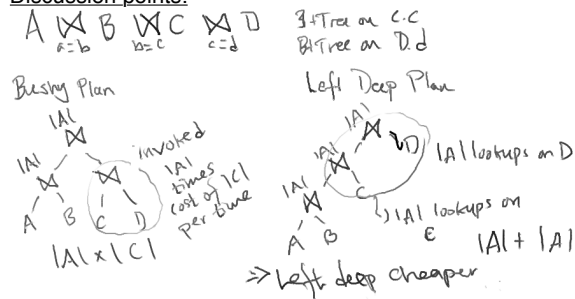 Discussion points:
A ⋈ B ⋈ C ⋈ D
a=b b=c c=d
B+Tree on C.c
B+Tree on D.d
Bushy Plan
|A|
⋈
|A|
⋈ ⋈
A B C D
invoked
|A|
times
cost of |C|
per time
|A| x |C|
Left Deep Plan
⋈
|A|
⋈ D
|A|
⋈ C
|A|
A B
|A| lookups on D
|A| lookups on
C
|A| + |A|
=> Left deep cheaper